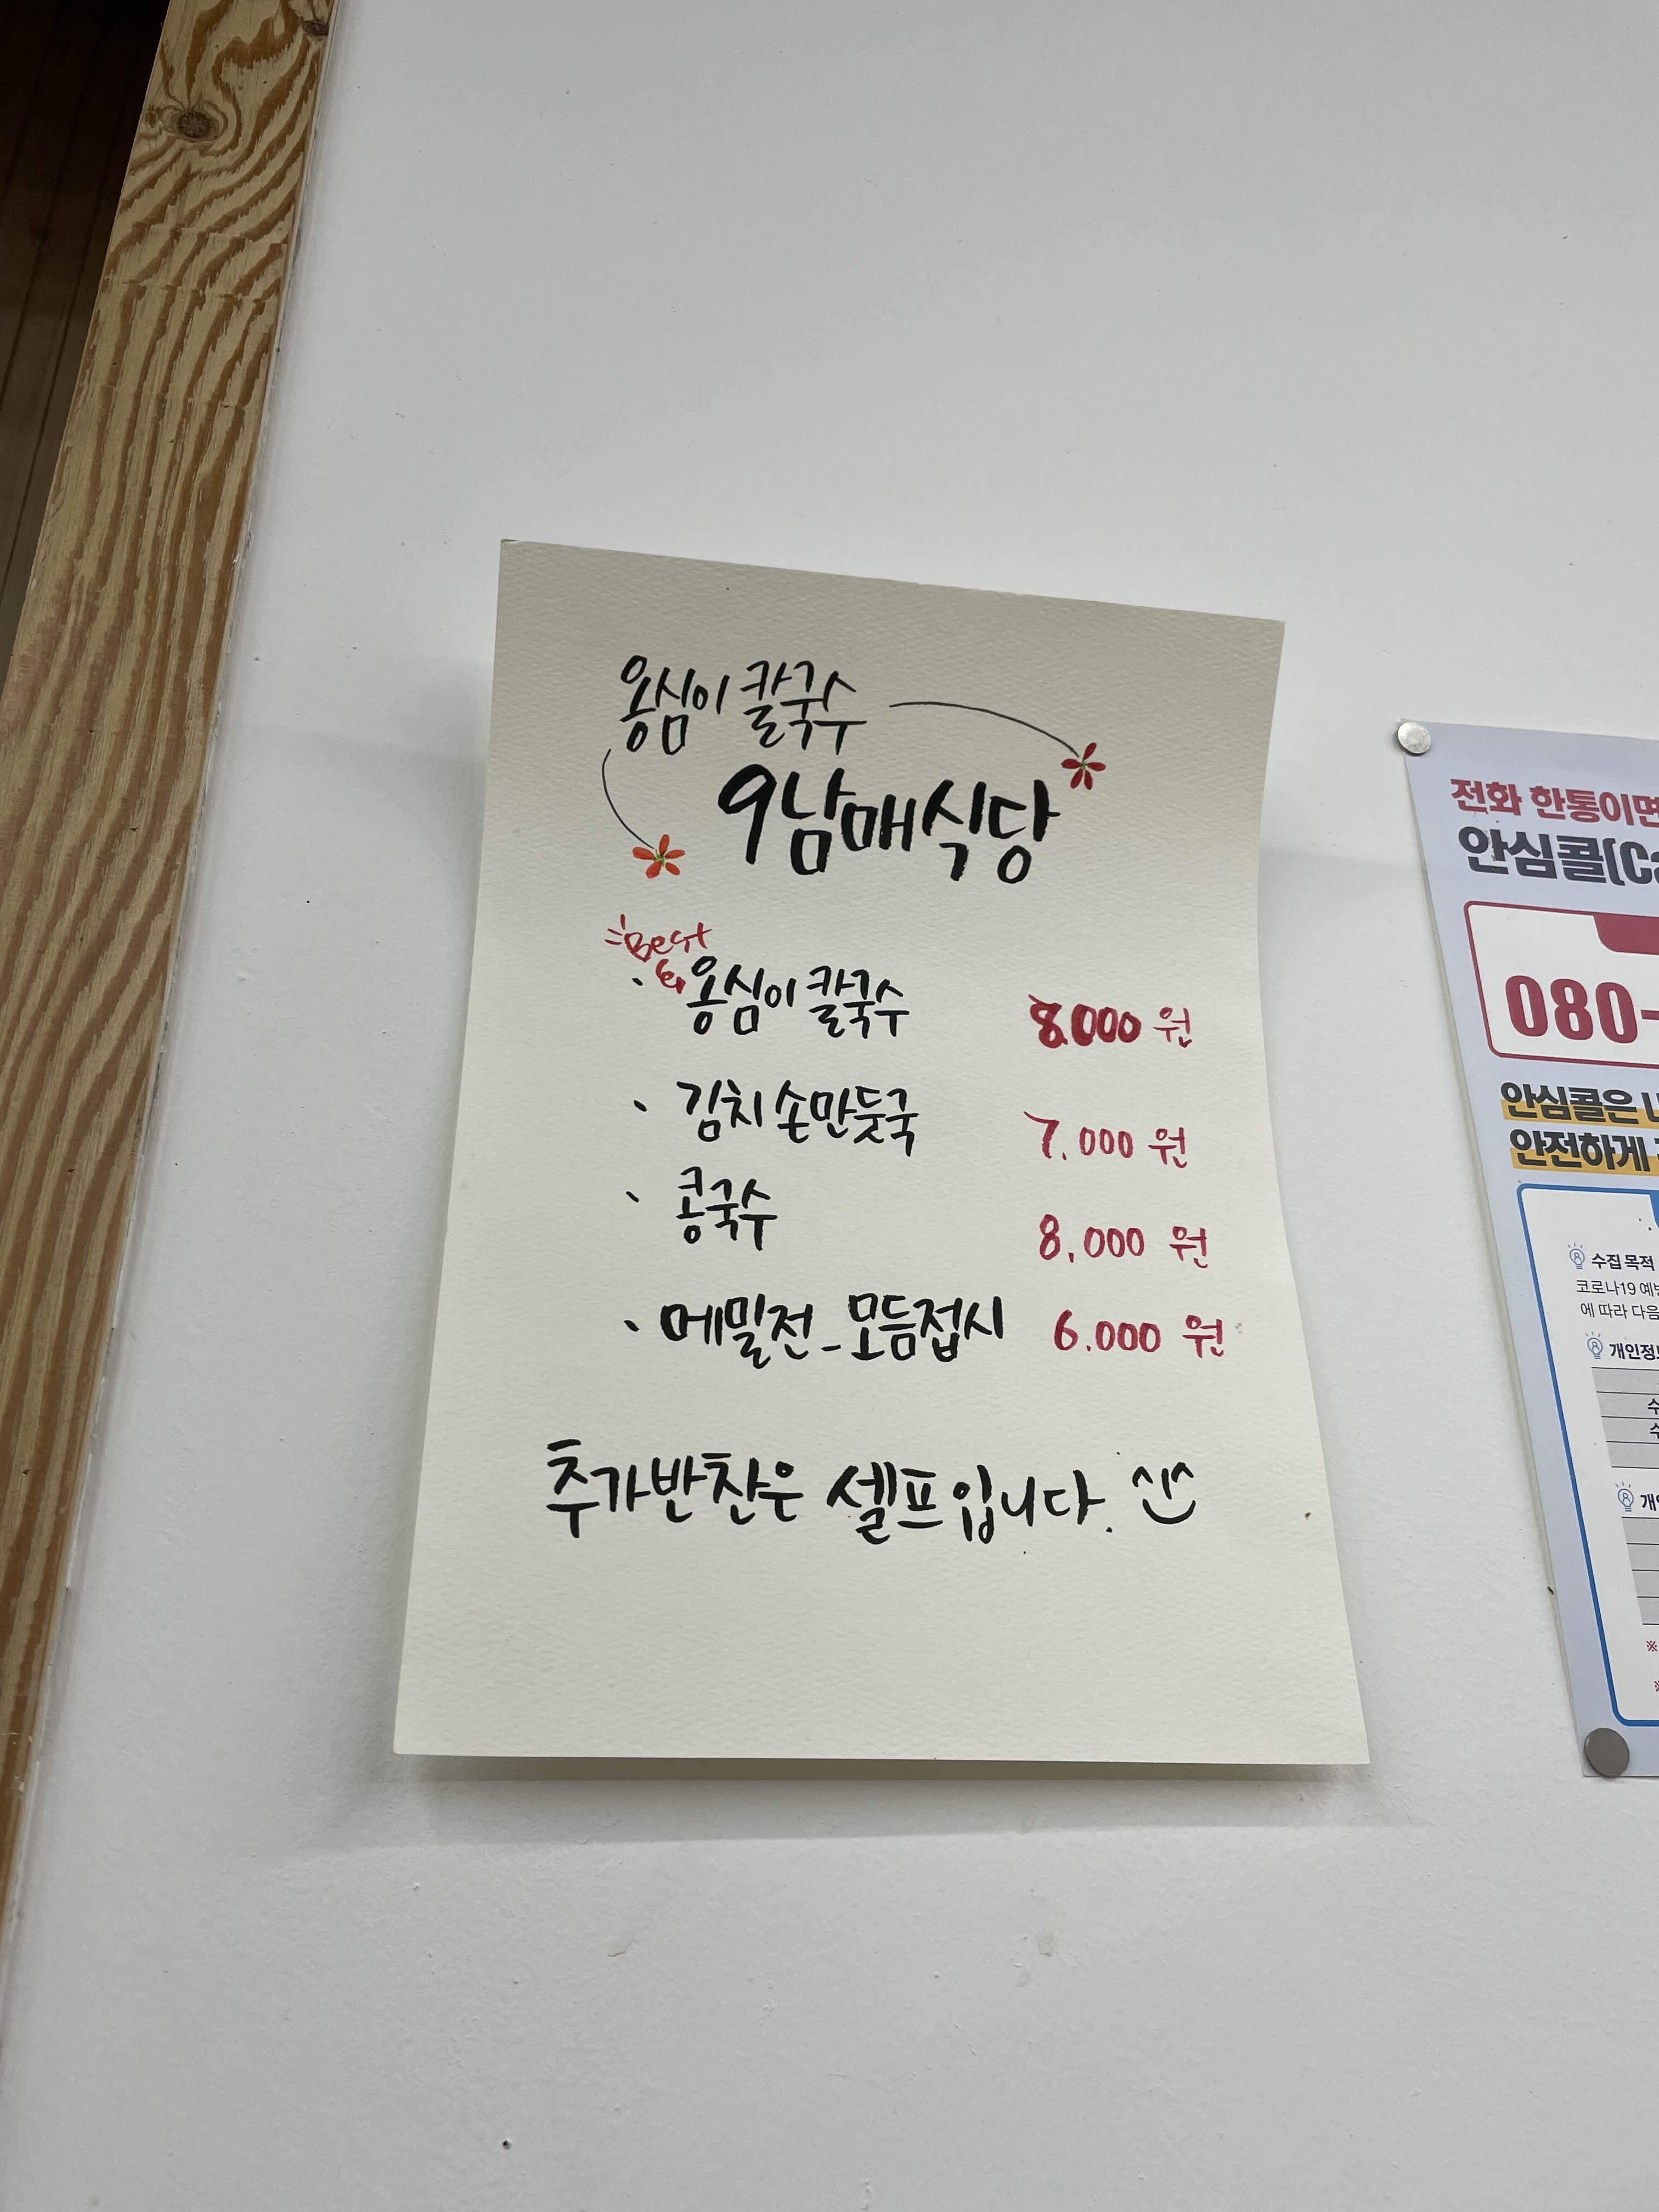 옹심이 칼국수
9남매식당
Best
· 옹심이 칼국수 8.000 원
· 김치 손만둣국 7.000 원
· 콩국수 8,000 원
· 메밀전_모듬접시 6.000 원
추가반찬은 셀프입니다.
전화 한통이면
안심콜(Ca
080-
안심콜은 나
안전하게
수집 목적
코로나19 예방
에 따라 다음
개인정보
수
수
개인
※